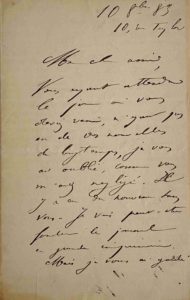 10 9bre 83
10, rue Taylor
Mon cher ami,
Vous ayant attendu
le jour où vous
devez venir, n'ayant pas
eu de vos nouvelles
de longtemps, je vous
ai oublié, comme vous
m'avez négligé. Il
y a du nouveau sous
vous. Je vais peut-être
fonder le journal
Mais je vous ai